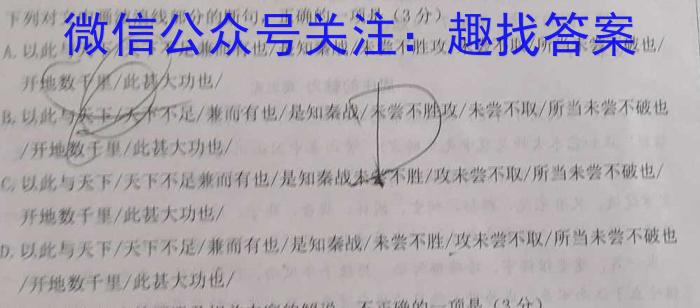 下列对文中画波浪线部分的断句，正确的一项是（3分）
微信公众号关注：趣找答案
A. 以此与天下/天下不足兼而有也/是知秦战/未尝不胜攻/未尝不取/所当未尝不破也/
开地数千里/此甚大功也/
B. 以此与天下/天下不足/兼而有也/是知秦战/未尝不胜攻/未尝不取/所当未尝不破也
/开地数千里/此甚大功也/
C. 以此与天下/天下不足兼而有也/是知秦战未尝不胜/攻未尝不取/所当未尝不破也/
开地数千里/此甚大功也/
D. 以此与天下/天下不足/兼而有也/是知秦战/未尝不胜/攻未尝不取/所当未尝不破也
/开地数千里/此甚大功也/
不正确的一项是（3分）